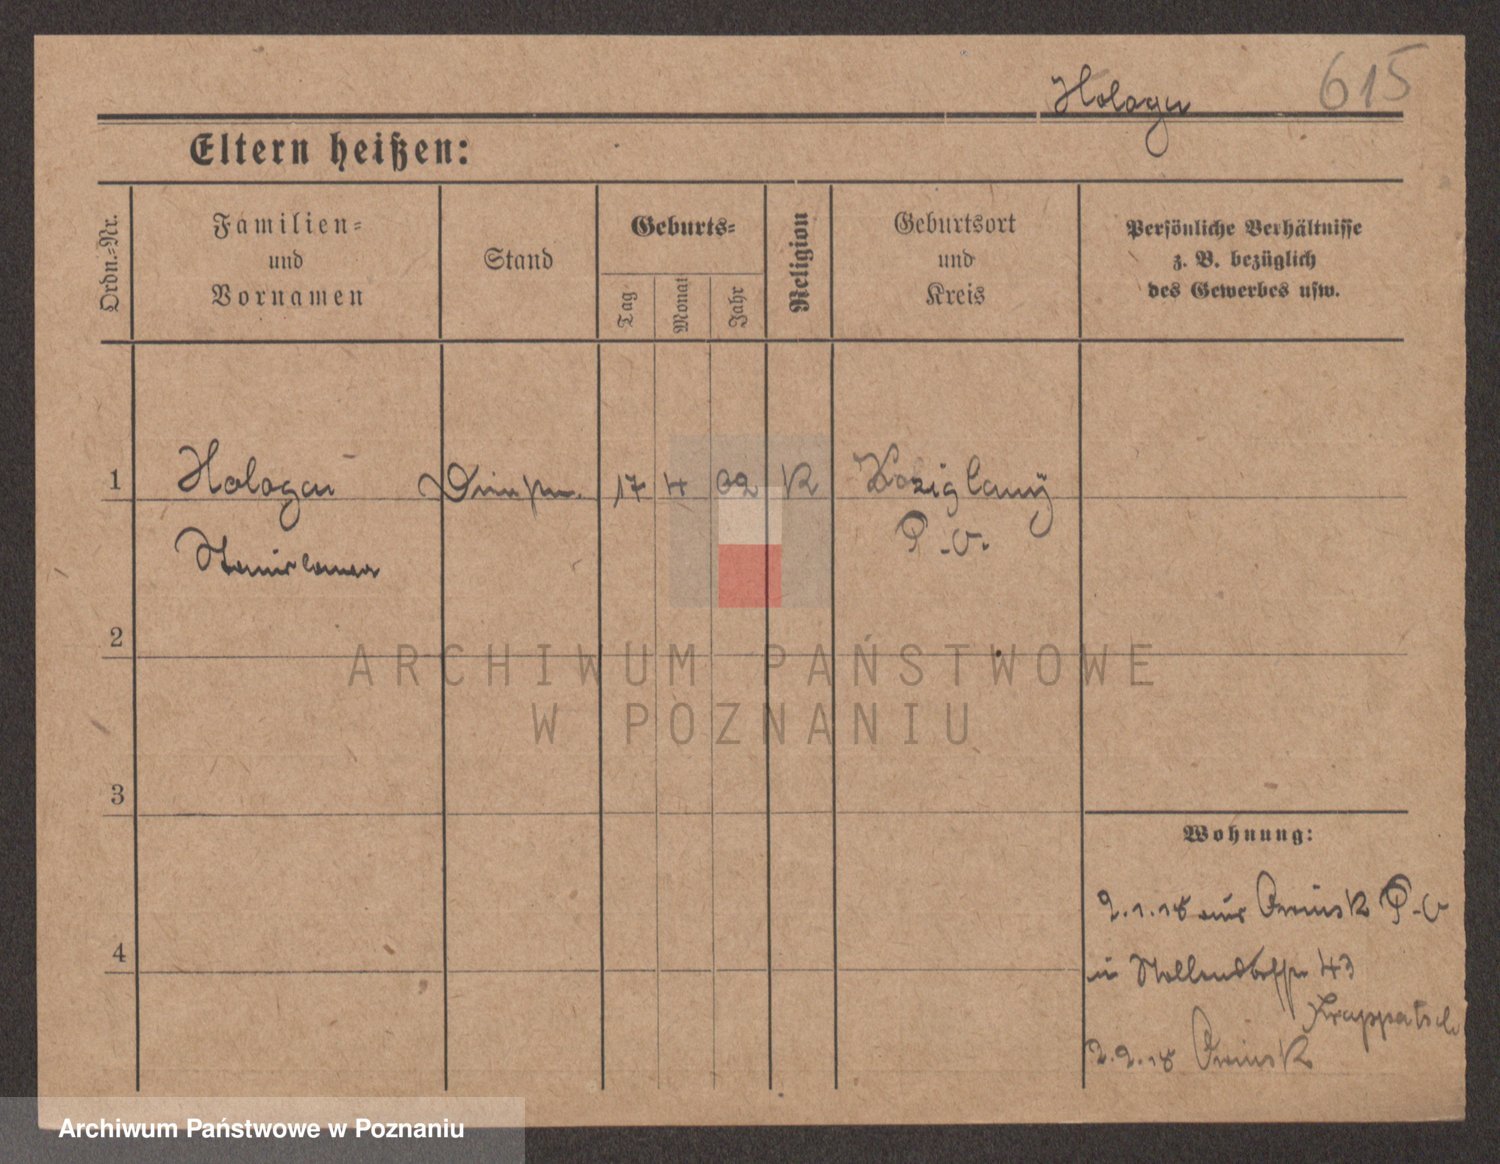 615
Hologa
Eltern heißen:
Ordn.-Nr.
Familien- und Vornamen
Stand
Geburts-
Tag
Monat
Jahr
Religion
Geburtsort und Kreis
Persönliche Verhältnisse z. B. bezüglich des Gewerbes usw.
1
Hologa
17 4 02 K
Stanislawa
P.-O.
2
3
4
Wohnung:
2.1.18 aus P-O
43
Krappatsch
2.2.18
ARCHIWUM PAŃSTWOWE
W POZNANIU
Archiwum Państwowe w Poznaniu